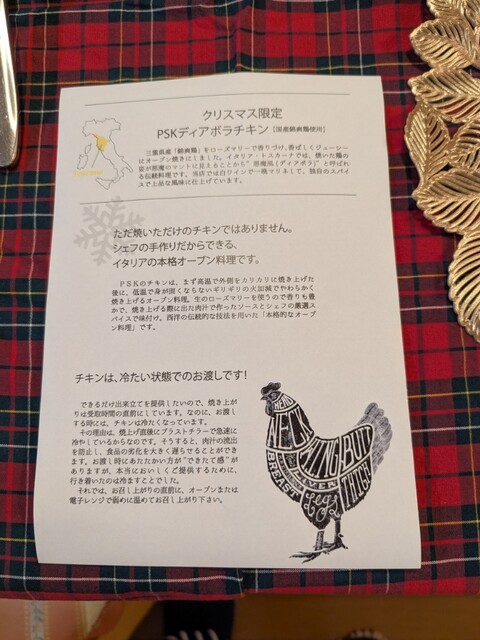 クリスマス限定
PSKディアボラチキン【国産錦爽鶏使用】
三重県産「錦爽鶏」をローズマリーで香りづけ、香ばしくジューシー
にオーブン焼きにしました。イタリア・トスカーナでは、焼いた鶏の
姿が悪魔のマントに見えることから"悪魔風(ディアボラ)"と呼ばれ
る伝統料理です。当店では白ワインで一晩マリネして、独自のスパイ
スで上品な風味に仕上げています。
ただ焼いただけのチキンではありません。
シェフの手作りだからできる、
イタリアの本格オーブン料理です。
PSKのチキンは、まず高温で外側をカリカリに焼き上げた
後に、低温で身が固くならないギリギリの火加減でやわらかく
焼き上げるオーブン料理。生のローズマリーを使うので香りも豊
かで、焼き上げる際に出た肉汁で作ったソースとシェフの厳選ス
パイスで味付け。西洋の伝統的な技法を用いた「本格的なオーブ
ン料理」です。
チキンは、冷たい状態でのお渡しです!
できるだけ出来立てを提供したいので、焼き上が
りは受取時間の直前にしています。なのに、お渡し
する時には、チキンは冷たくなっています。
その理由は、焼上げ直後にブラストチラーで急速に
冷やしているからなのです。そうすると、肉汁の流出
を防止し、食品の劣化を大きく遅らせることができ
ます。お渡し時にあたたかい方が"できたて感"が
ありますが、本当においしくご提供するために、
行き着いたのは冷ますことでした。
それでは、お召し上がりの直前に、オーブンまたは
電子レンジで弱めに温めてお召し上がり下さい。
HEAD
NECK
WING
BUTT
LIVER
BREAST
LEGS
THIGH